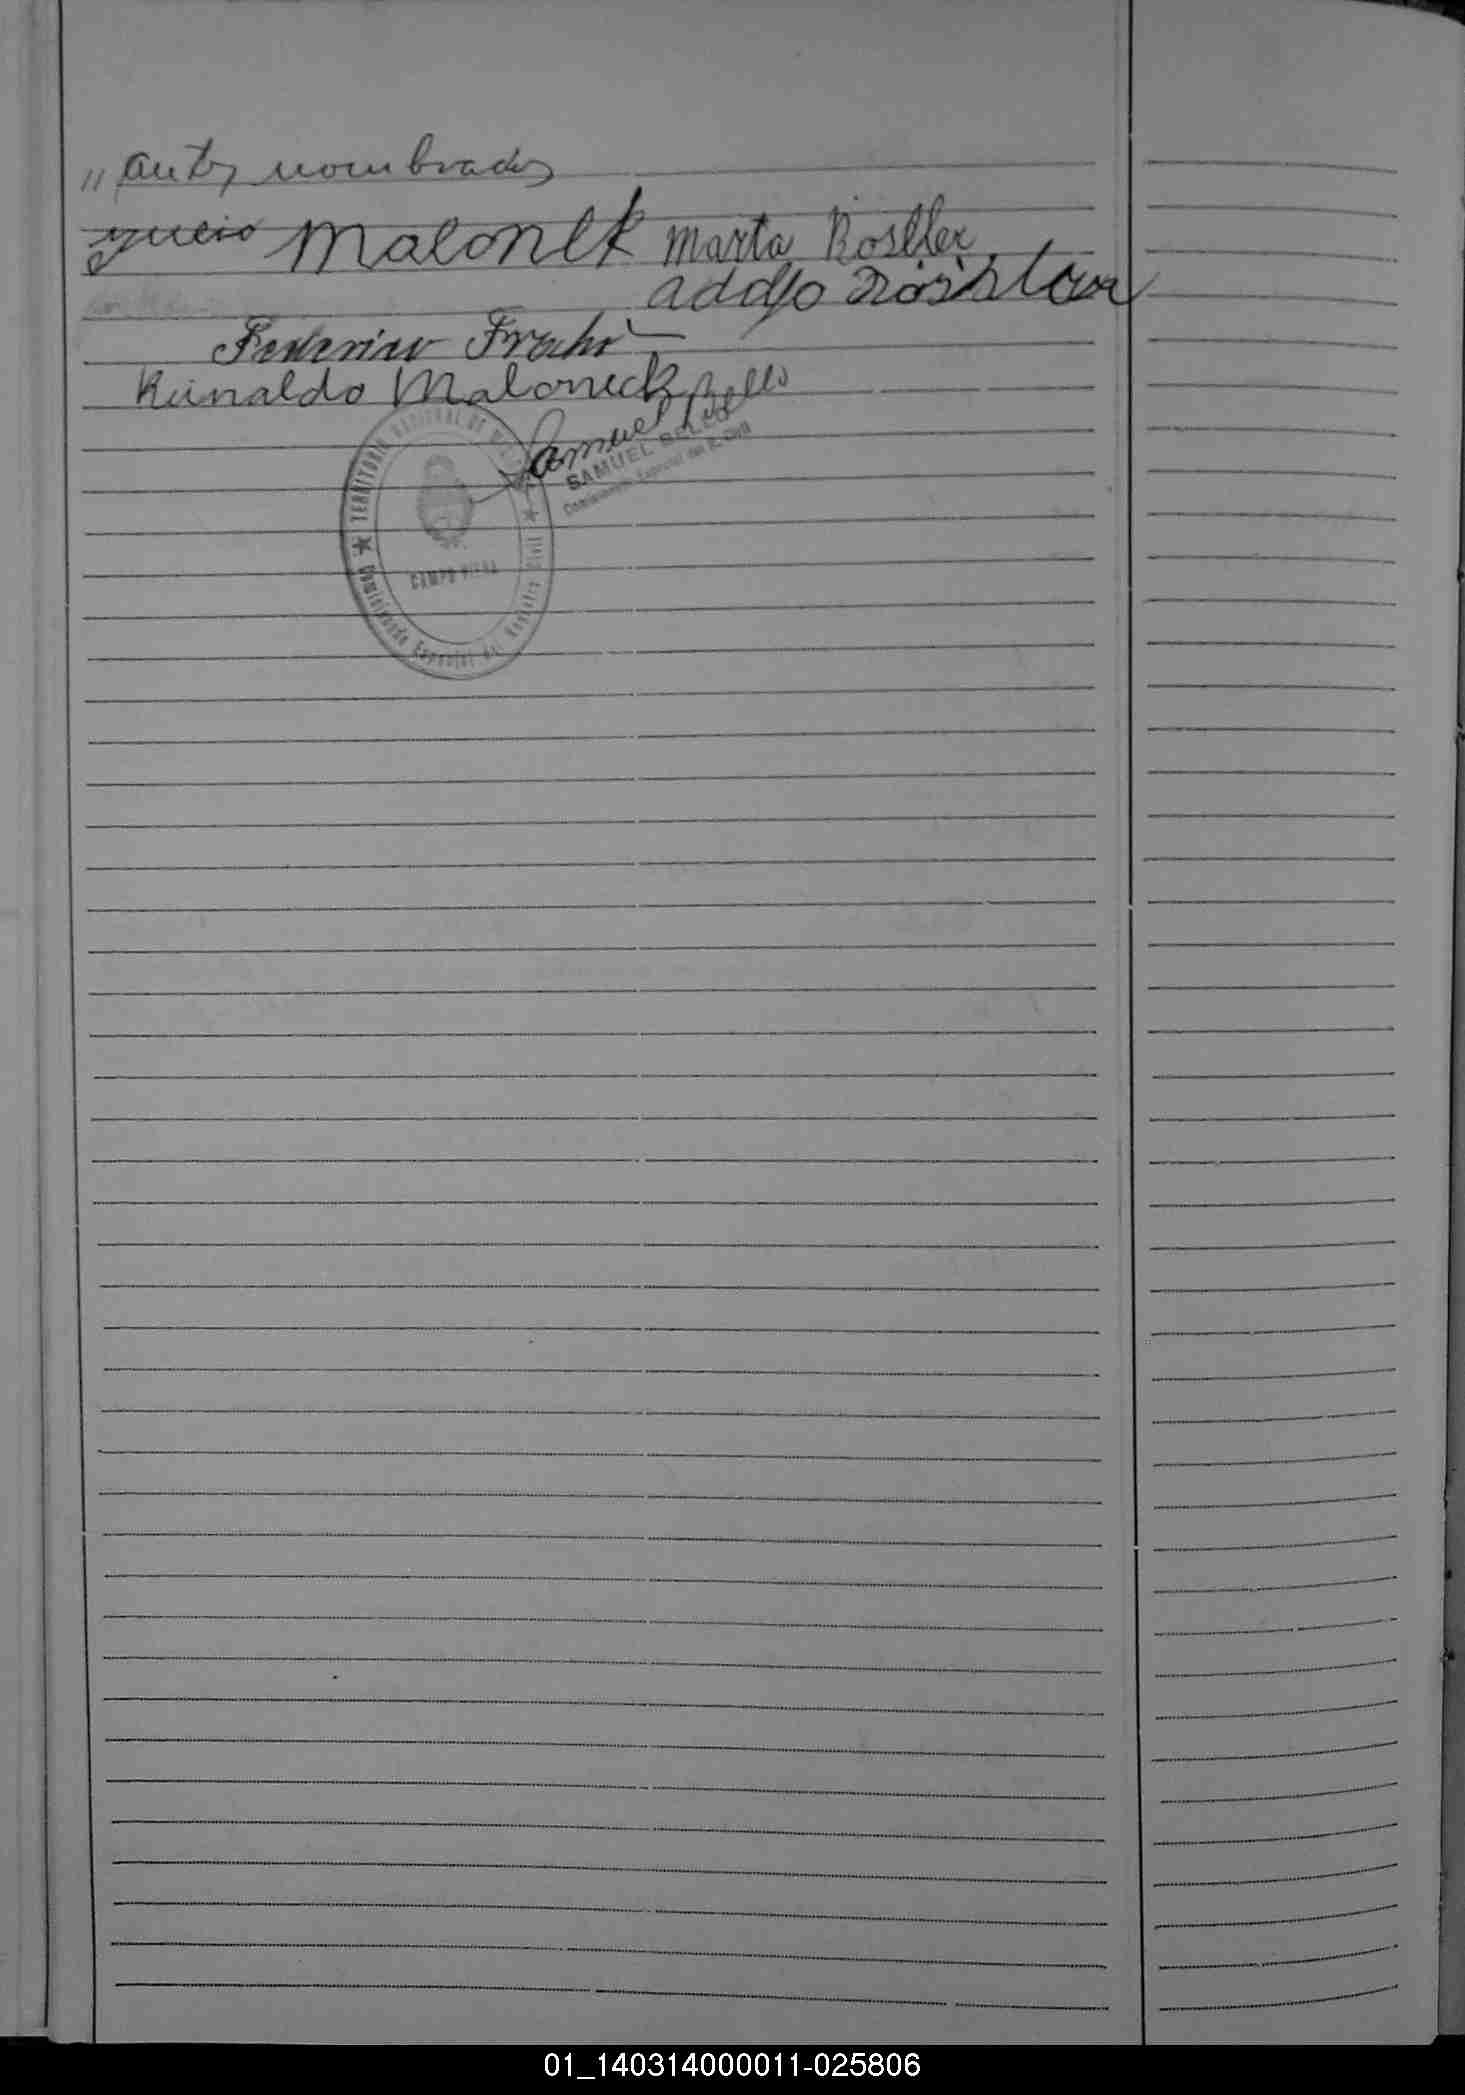 " antes nombrados
Malonek Marta Rosller
adolfo
Federico
Reinaldo Maloneck
Samuel Bello
SAMUEL BELLO
Comisionado Especial del R. Civil
★ TERRITORIO NACIONAL DE
CAMPO VIERA
★ Comisionado Especial del Registro Civil
01_140314000011-025806